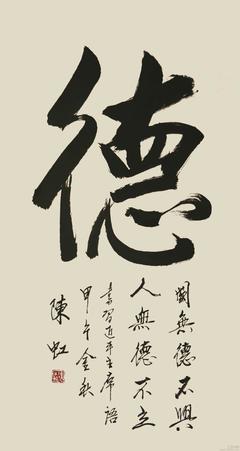 德
國無德不興
人無德不立
書習近平主席語
甲午金秋
陳虹